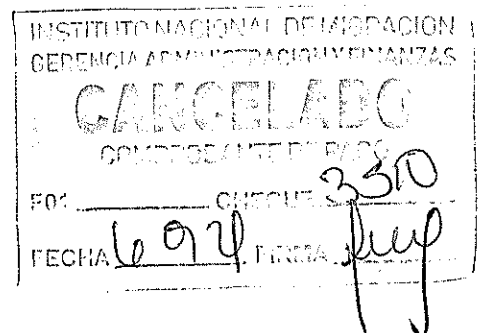 INSTITUTO NACIONAL DE MIGRACION
GERENCIA ADMINISTRACION Y FINANZAS
CANCELADO
COMPROBANTE DE PAGO
F01 CHEQUE
FECHA FIRMA